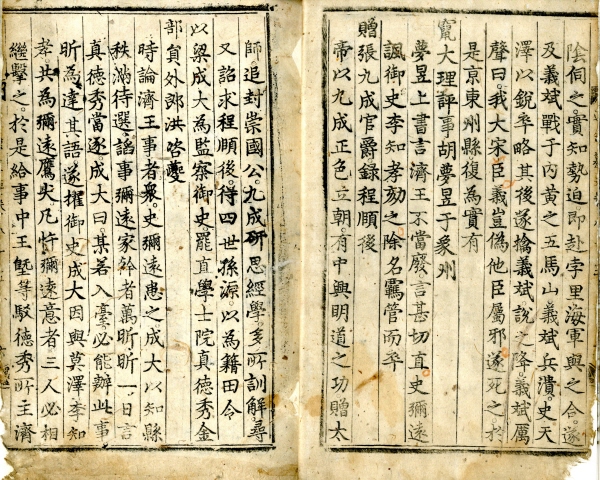 陰伺之實知勢迫即赴孛里海軍與之合遂
及義斌戰于内黄之五馬山義斌兵潰史天
澤以銳卒略其後遂擒義斌說之降義斌厲
聲曰我大宋臣義豈偽他臣屬邪遂死之於
是京東州縣復為實有
竄大理評事胡夢昱于象州
夢昱上書言濟王不當廢言甚切直史彌遠
諷御史李知孝劾之除名羈管而卒
贈張九成官爵録程頤後
帝以九成正色立朝有中興明道之功贈太
師追封崇國公九成研思經學多所訓解尋
又詔求程頤後得四世孫源以為籍田令
以梁成大為監察御史罷直學士院真德秀金
部員外郎洪咨夔
時論濟王事者衆史彌遠患之成大以知縣
秩滿待選謟事彌遠家幹者萬昕昕一日言
真德秀當逐成大曰某若入臺必能辦此事
昕為達其語遂擢御史成大因與莫澤李知
孝共為彌遠鷹犬凡忤彌遠意者三人必相
繼擊之於是給事中王塈等駁德秀所主濟